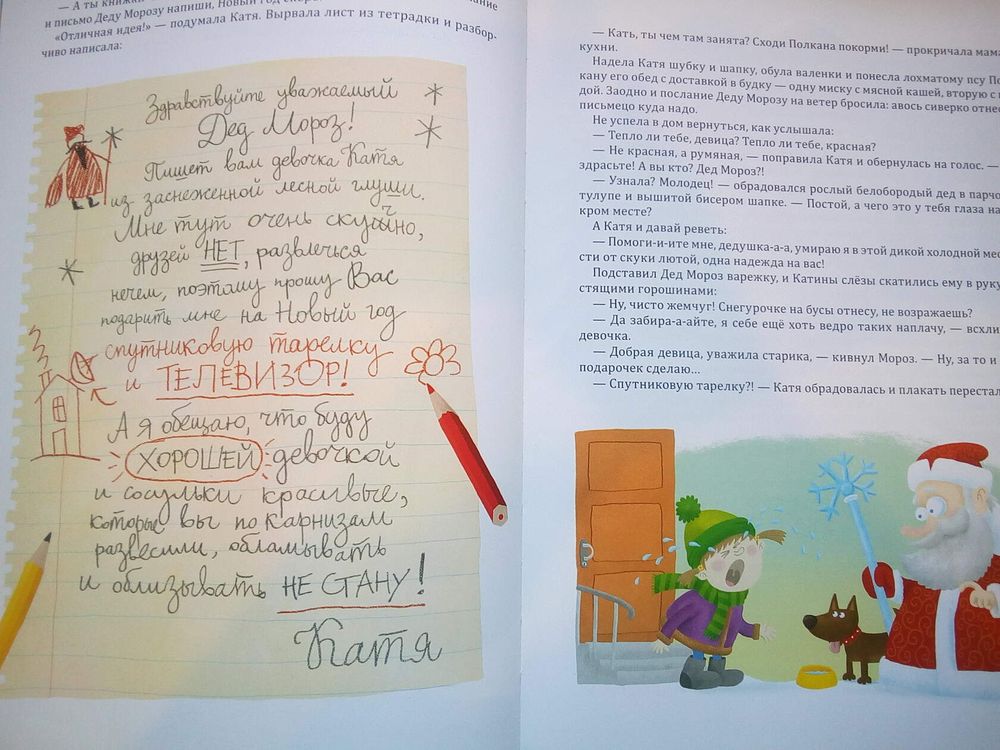 — А ты книжки
и письмо Деду Морозу напиши, Новый год
«Отличная идея!» — подумала Катя. Вырвала лист из тетрадки и разбор-
чиво написала:
Здравствуйте уважаемый
Дед Мороз!
Пишет вам девочка Катя
из заснеженной лесной глуши.
Мне тут очень скучно,
друзей НЕТ, развлечся
нечем, поэтому прошу Вас
подарить мне на Новый год
спутниковую тарелку
и ТЕЛЕВИЗОР!
А я обещаю, что буду
ХОРОШЕЙ девочкой
и сосульки красивые,
которые вы по карнизам
развесили, обламывать
и облизывать НЕ СТАНУ!
Катя
— Кать, ты чем там занята? Сходи Полкана покорми! — прокричала мама
кухни.
Надела Катя шубку и шапку, обула валенки и понесла лохматому псу По
кану его обед с доставкой в будку — одну миску с мясной кашей, вторую с
дой. Заодно и послание Деду Морозу на ветер бросила: авось сиверко отнес
письмецо куда надо.
Не успела в дом вернуться, как услышала:
— Тепло ли тебе, девица? Тепло ли тебе, красная?
— Не красная, а румяная, — поправила Катя и обернулась на голос. —
здрасьте! А вы кто? Дед Мороз?!
— Узнала? Молодец! — обрадовался рослый белобородый дед в парчо
тулупе и вышитой бисером шапке. — Постой, а чего это у тебя глаза на
кром месте?
А Катя и давай реветь:
— Помоги-и-ите мне, дедушка-а-а, умираю я в этой дикой холодной мес
сти от скуки лютой, одна надежда на вас!
Подставил Дед Мороз варежку, и Катины слёзы скатились ему в руку
стящими горошинами:
— Ну, чисто жемчуг! Снегурочке на бусы отнесу, не возражаешь?
— Да забира-а-айте, я себе ещё хоть ведро таких наплачу, — всхли
девочка.
— Добрая девица, уважила старика, — кивнул Мороз. — Ну, за то и
подарочек сделаю...
— Спутниковую тарелку?! — Катя обрадовалась и плакать перестал